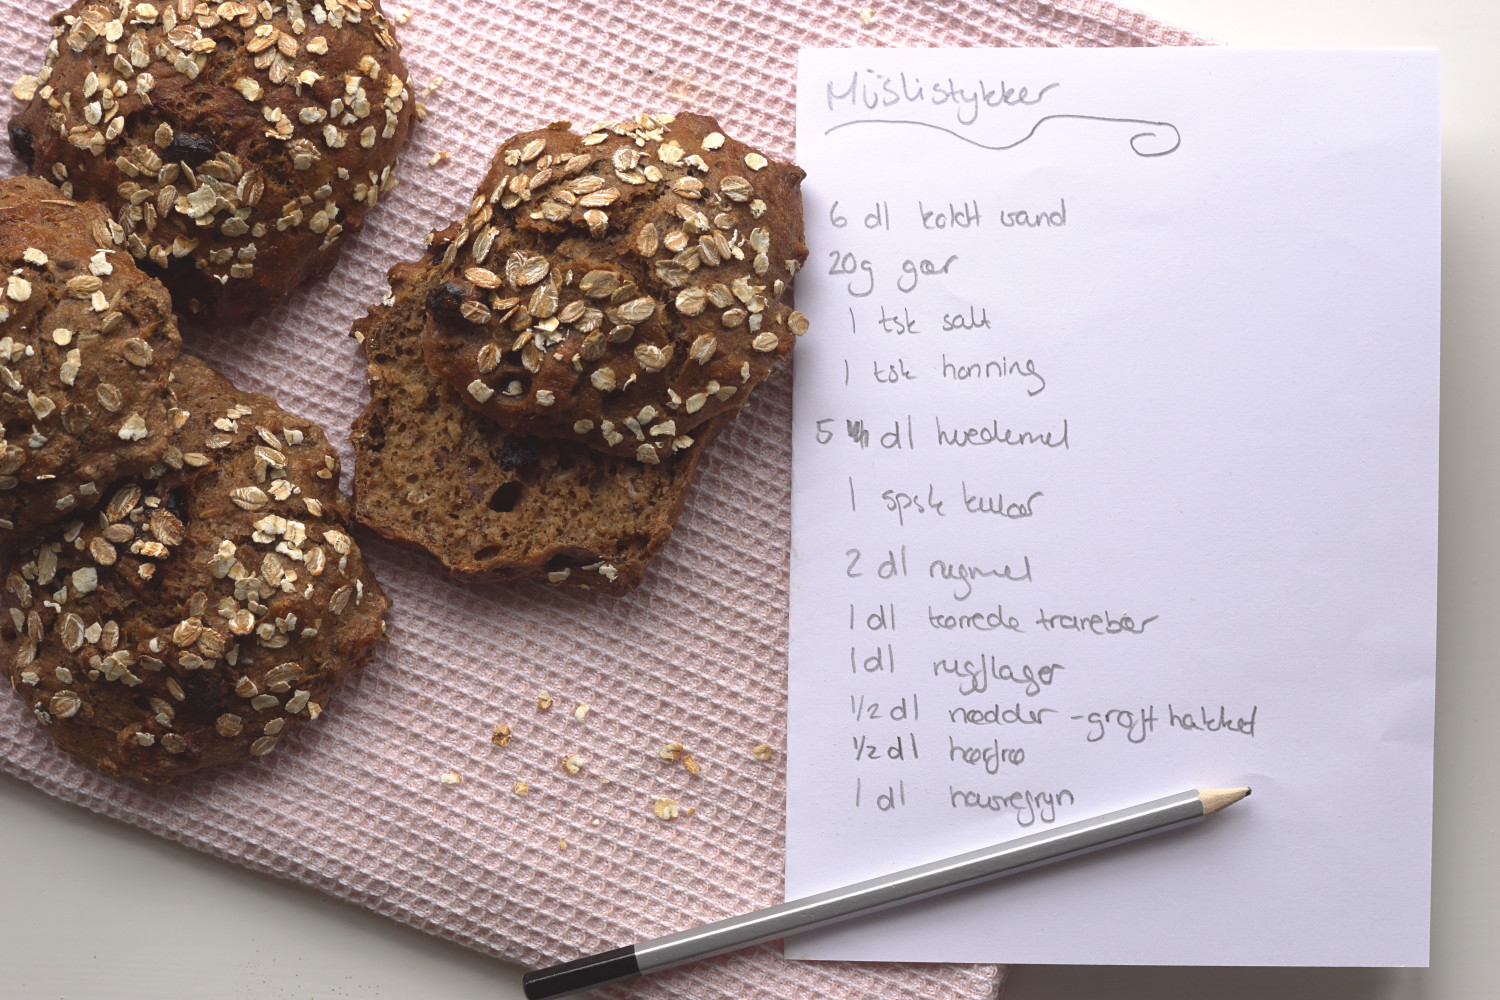 Müslistykker
6 dl koldt vand
20g gær
1 tsk salt
1 tsk honning
5 dl hvedemel
1 spsk kulør
2 dl rugmel
1 dl tørrede tranebær
1 dl rugflager
1/2 dl nødder - groft hakket
1/2 dl hørfrø
1 dl havregryn